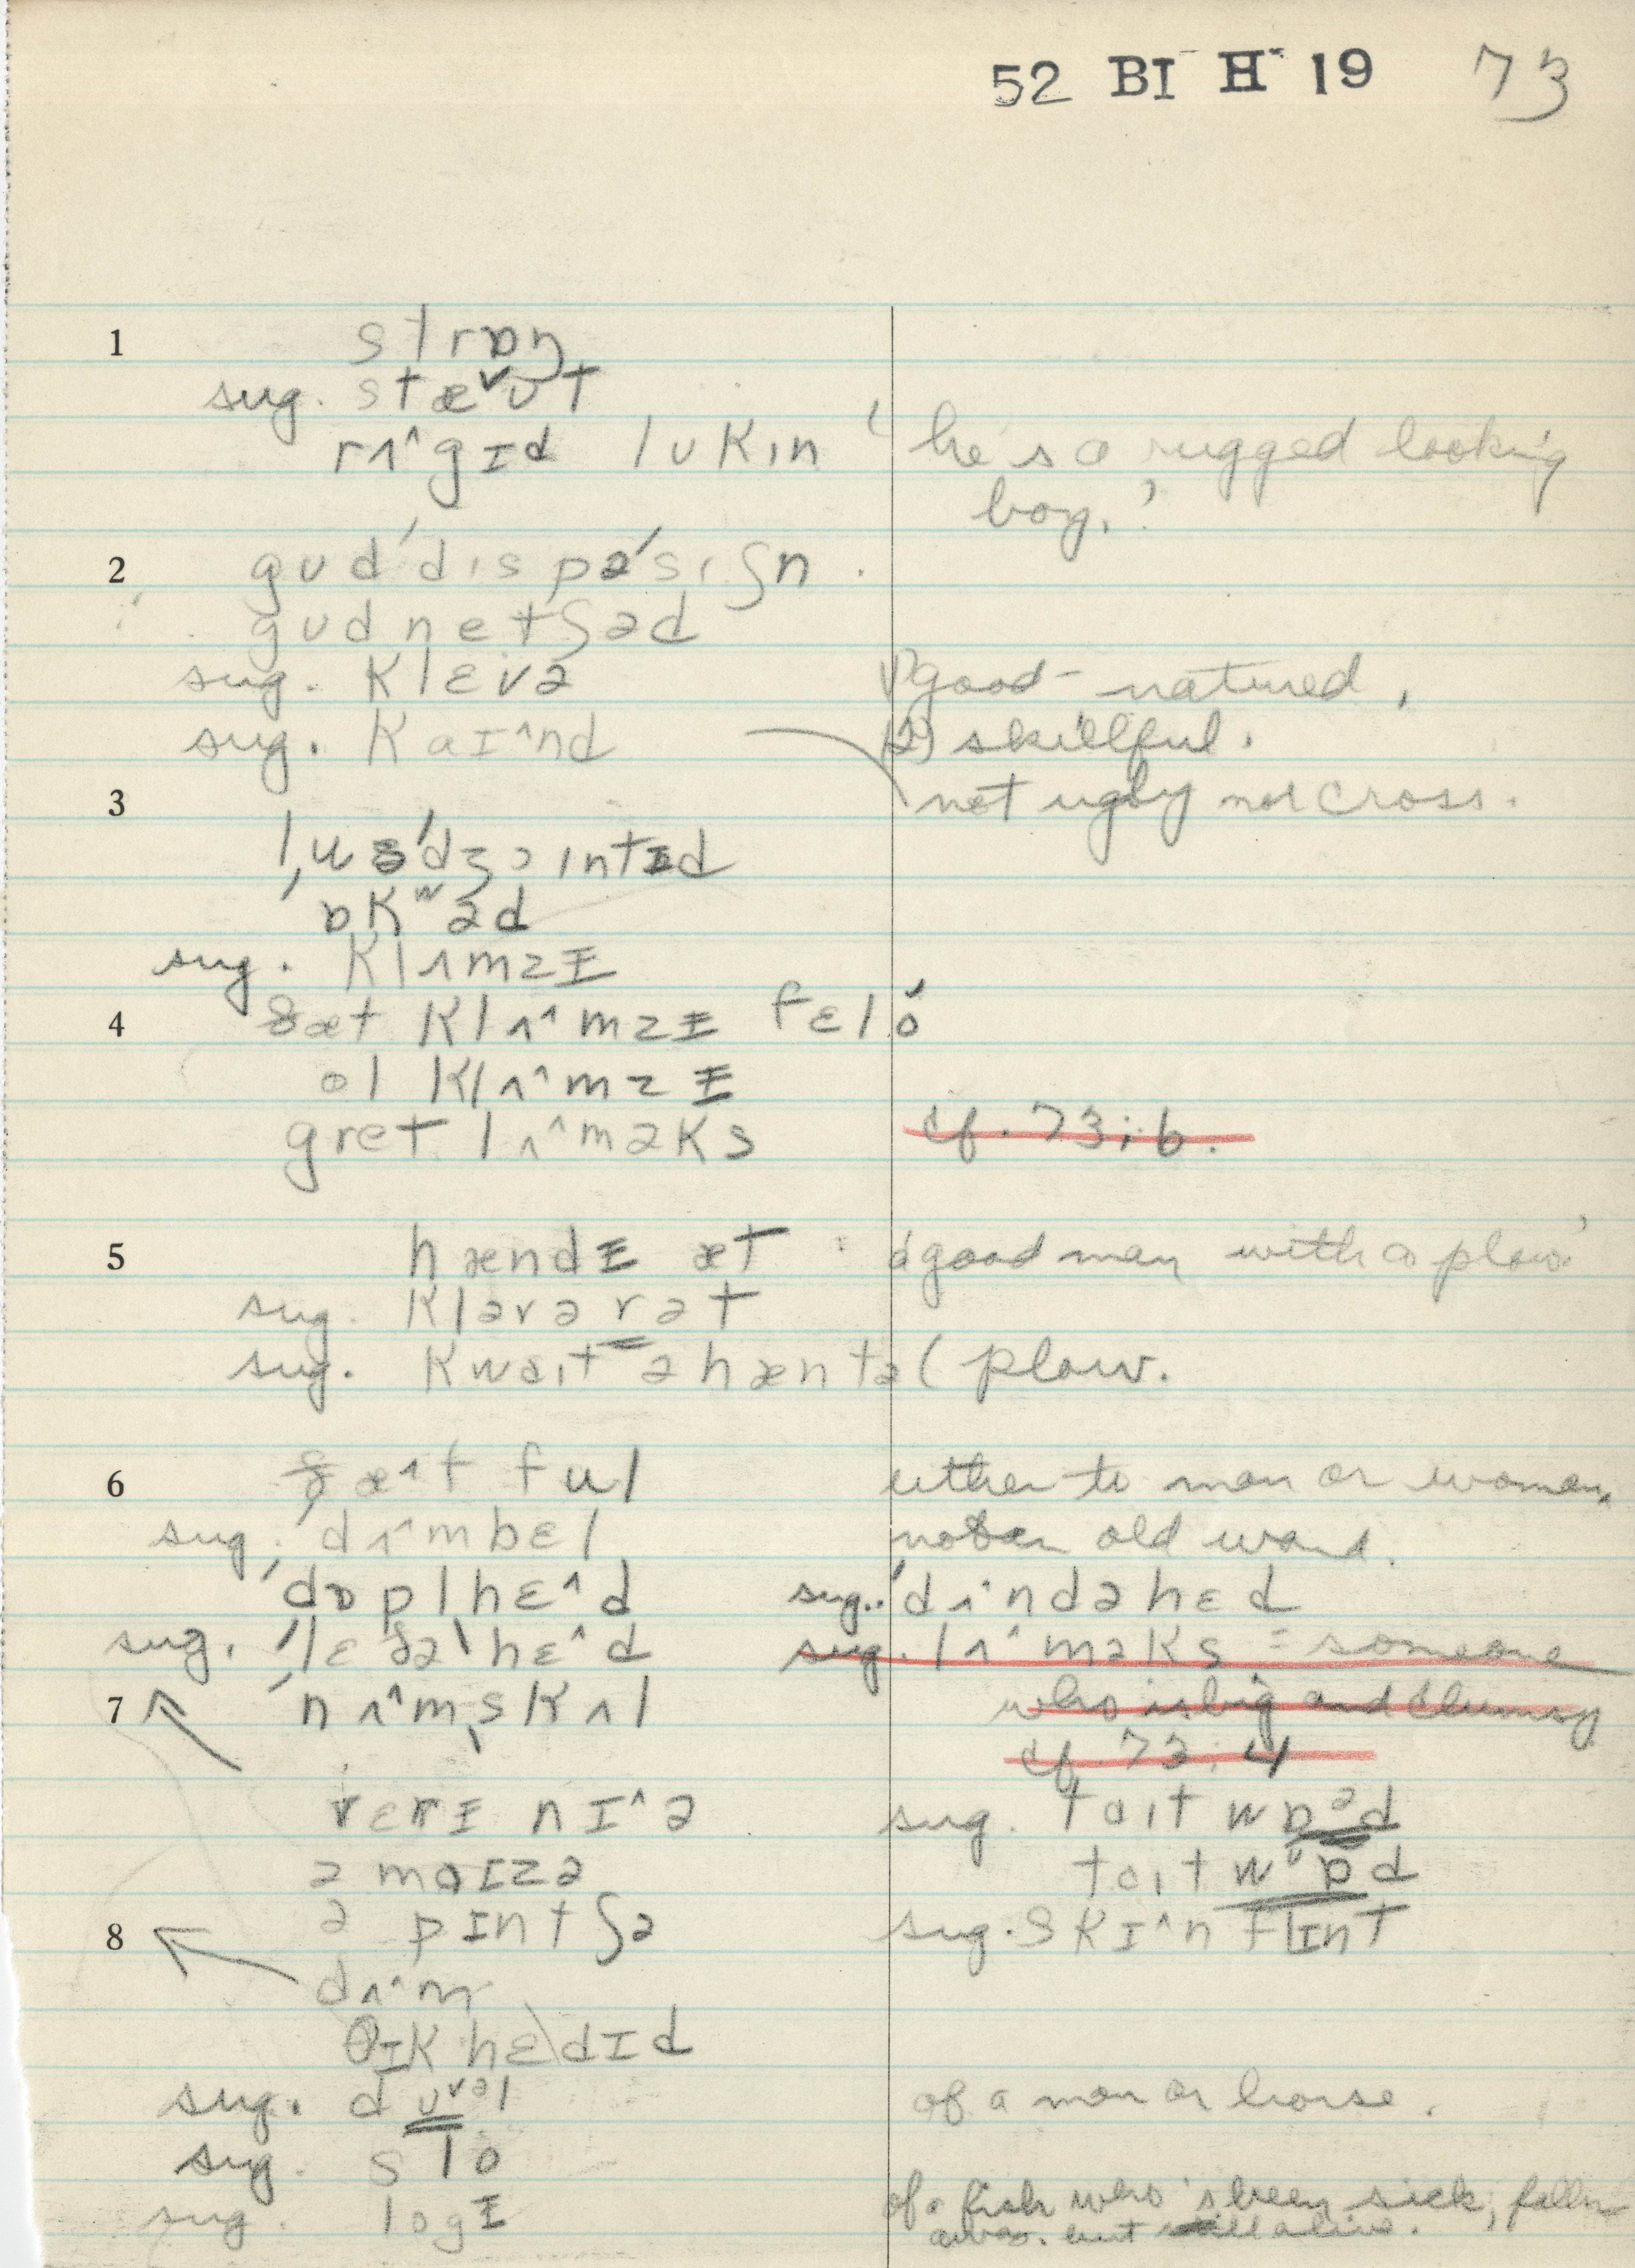 52 BI H 19 73
1 strɒŋ
sug. stæᵛʊt
rʌ^gɪd lʊkɪn 'he's a rugged looking
boy.'
2 gʊd'dɪspə'sɪʃn.
gʊd netʃəd
sug. klɛvə (1) good-natured,
sug. kaɪ^nd (2) skillful.
3 not ugly nor cross.
ˌdʒɔɪntɪd
'ɒkʷəd
sug. klʌmzɪ
4 ðæt klʌ^mzɪ fɛló
ol klʌ^mzɪ
gret lʌ^məks cf. 73:6.
5 hændɪ æt 'a good man with a plow'
sug. klɛvə r ət
sug. kwaɪt ə hænt əl plow.
6 ðæ^t ful either to man or woman.
sug. 'dʌ^mbɛl not an old word.
'dɒplhɛ^d sug. 'dʌ^ndəhɛd
sug. 'lɛðəˌhɛ^d sug. lʌ^məks = someone
7 'nʌ^mˌskʌl who is big and clumsy
cf. 73:4
vɛrɪ nɪ^ə sug. taɪt wɒᵊd
ə maɪzə taɪt wᶹɒd
8 ə pɪntʃə sug. skɪ^n flɪnt
dʌ^m
θɪk hɛdɪd
sug. dʊᵛᵊl of a man or horse.
sug. slo
sug. logɪ of a fish who's been sick, fallen
away. but still alive.